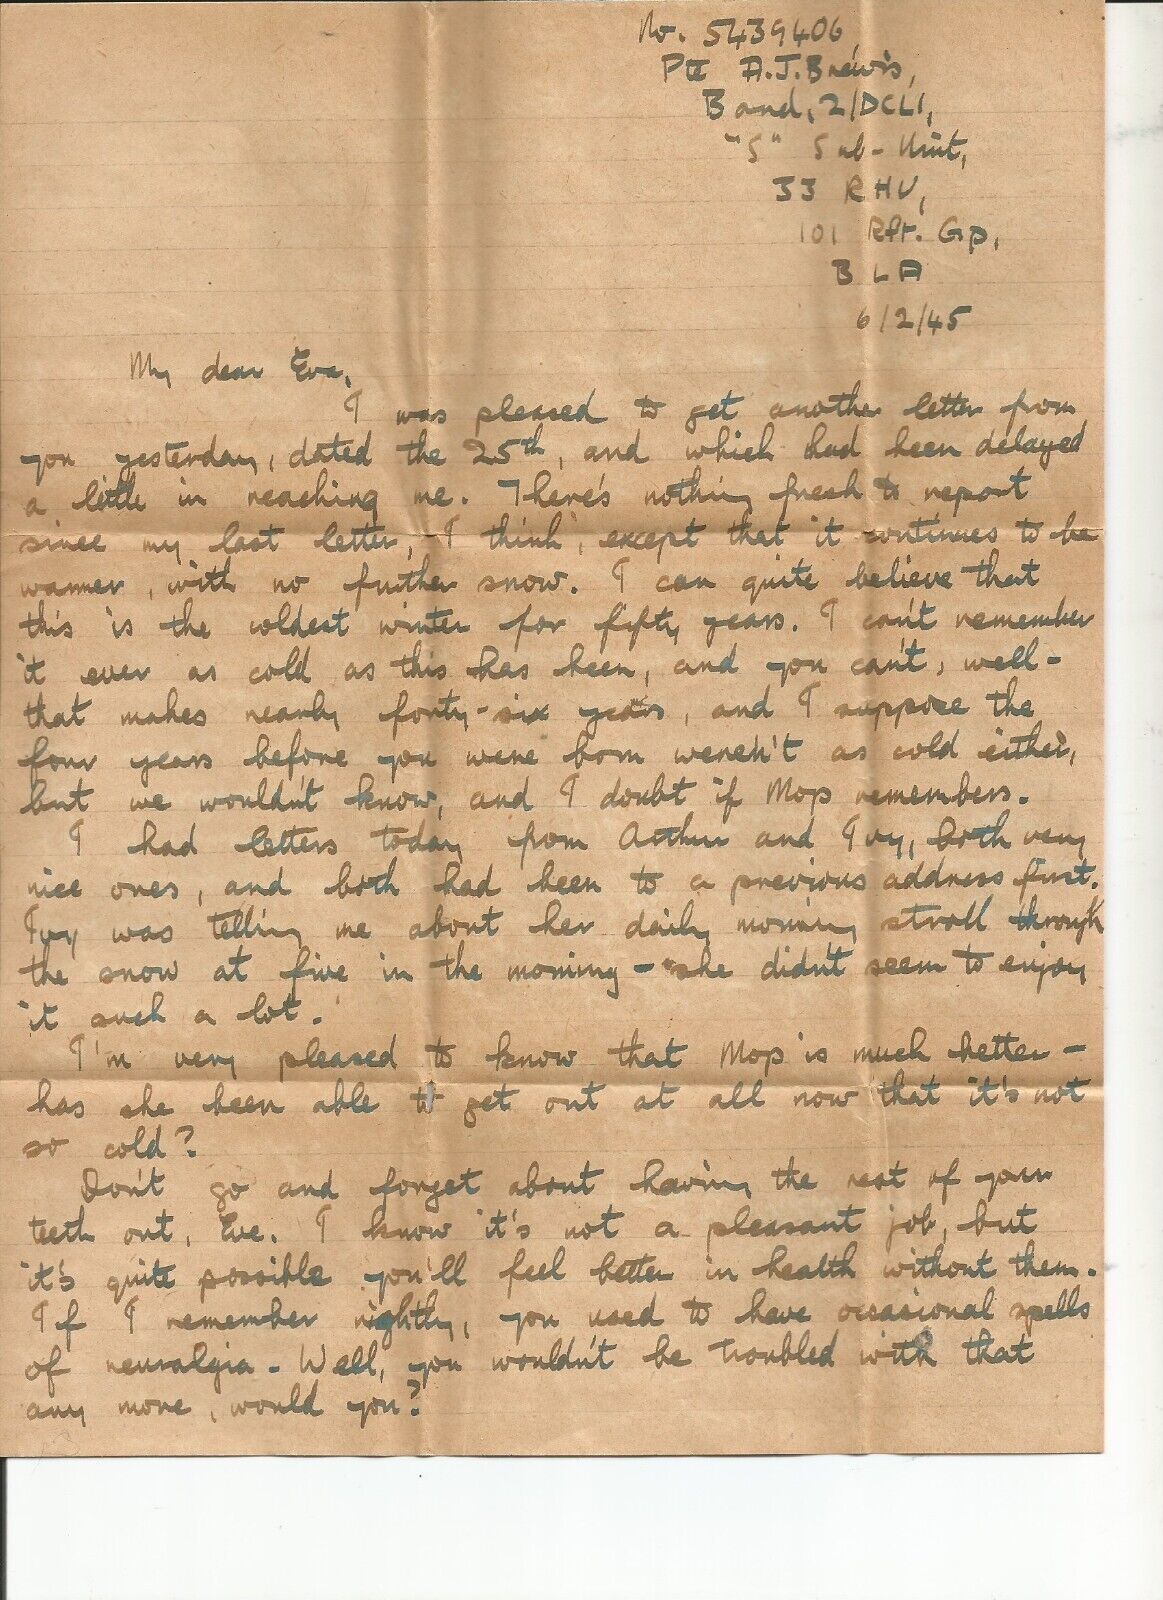 No. 5439406,
Pte A.J. Brewis,
Band, 2/DCLI,
"S" Sub-Unit,
33 RHU,
101 Rft. Gp,
B L A
6/2/45
My dear Eve,
I was pleased to get another letter from
you yesterday, dated the 25th, and which had been delayed
a little in reaching me. There's nothing fresh to report
since my last letter, I think, except that it continues to be
warmer, with no further snow. I can quite believe that
this is the coldest winter for fifty years. I can't remember
it ever as cold as this has been, and you can't, well-
that makes nearly forty-six years, and I suppose the
four years before you were born weren't as cold either,
but we wouldn't know, and I doubt if Mop remembers.
I had letters today from Arthur and Ivy, both very
nice ones, and both had been to a previous address first.
Ivy was telling me about her daily morning stroll through
the snow at five in the morning - she didn't seem to enjoy
it such a lot.
I'm very pleased to know that Mop is much better -
has she been able to get out at all now that it's not
so cold?
Don't go and forget about having the rest of your
teeth out, Eve. I know it's not a pleasant job, but
it's quite possible you'll feel better in health without them.
If I remember rightly, you used to have occasional spells
of neuralgia - Well, you wouldn't be troubled with that
any more, would you?